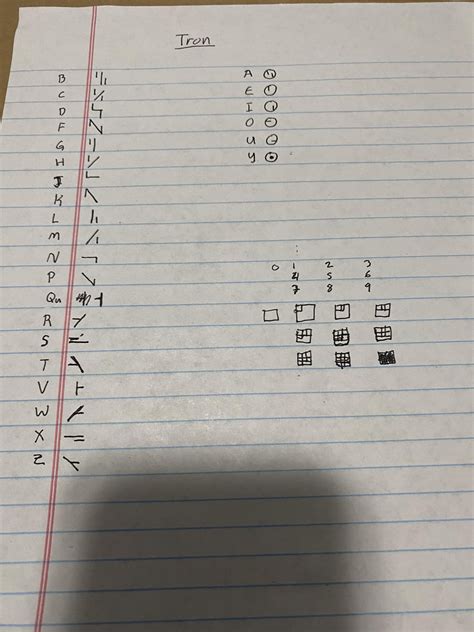 Tron
B
C
D
F
G
H
J
K
L
M
N
P
Qu
R
S
T
V
W
X
Z
A
E
I
O
U
Y
0 1 2 3
4 5 6
7 8 9